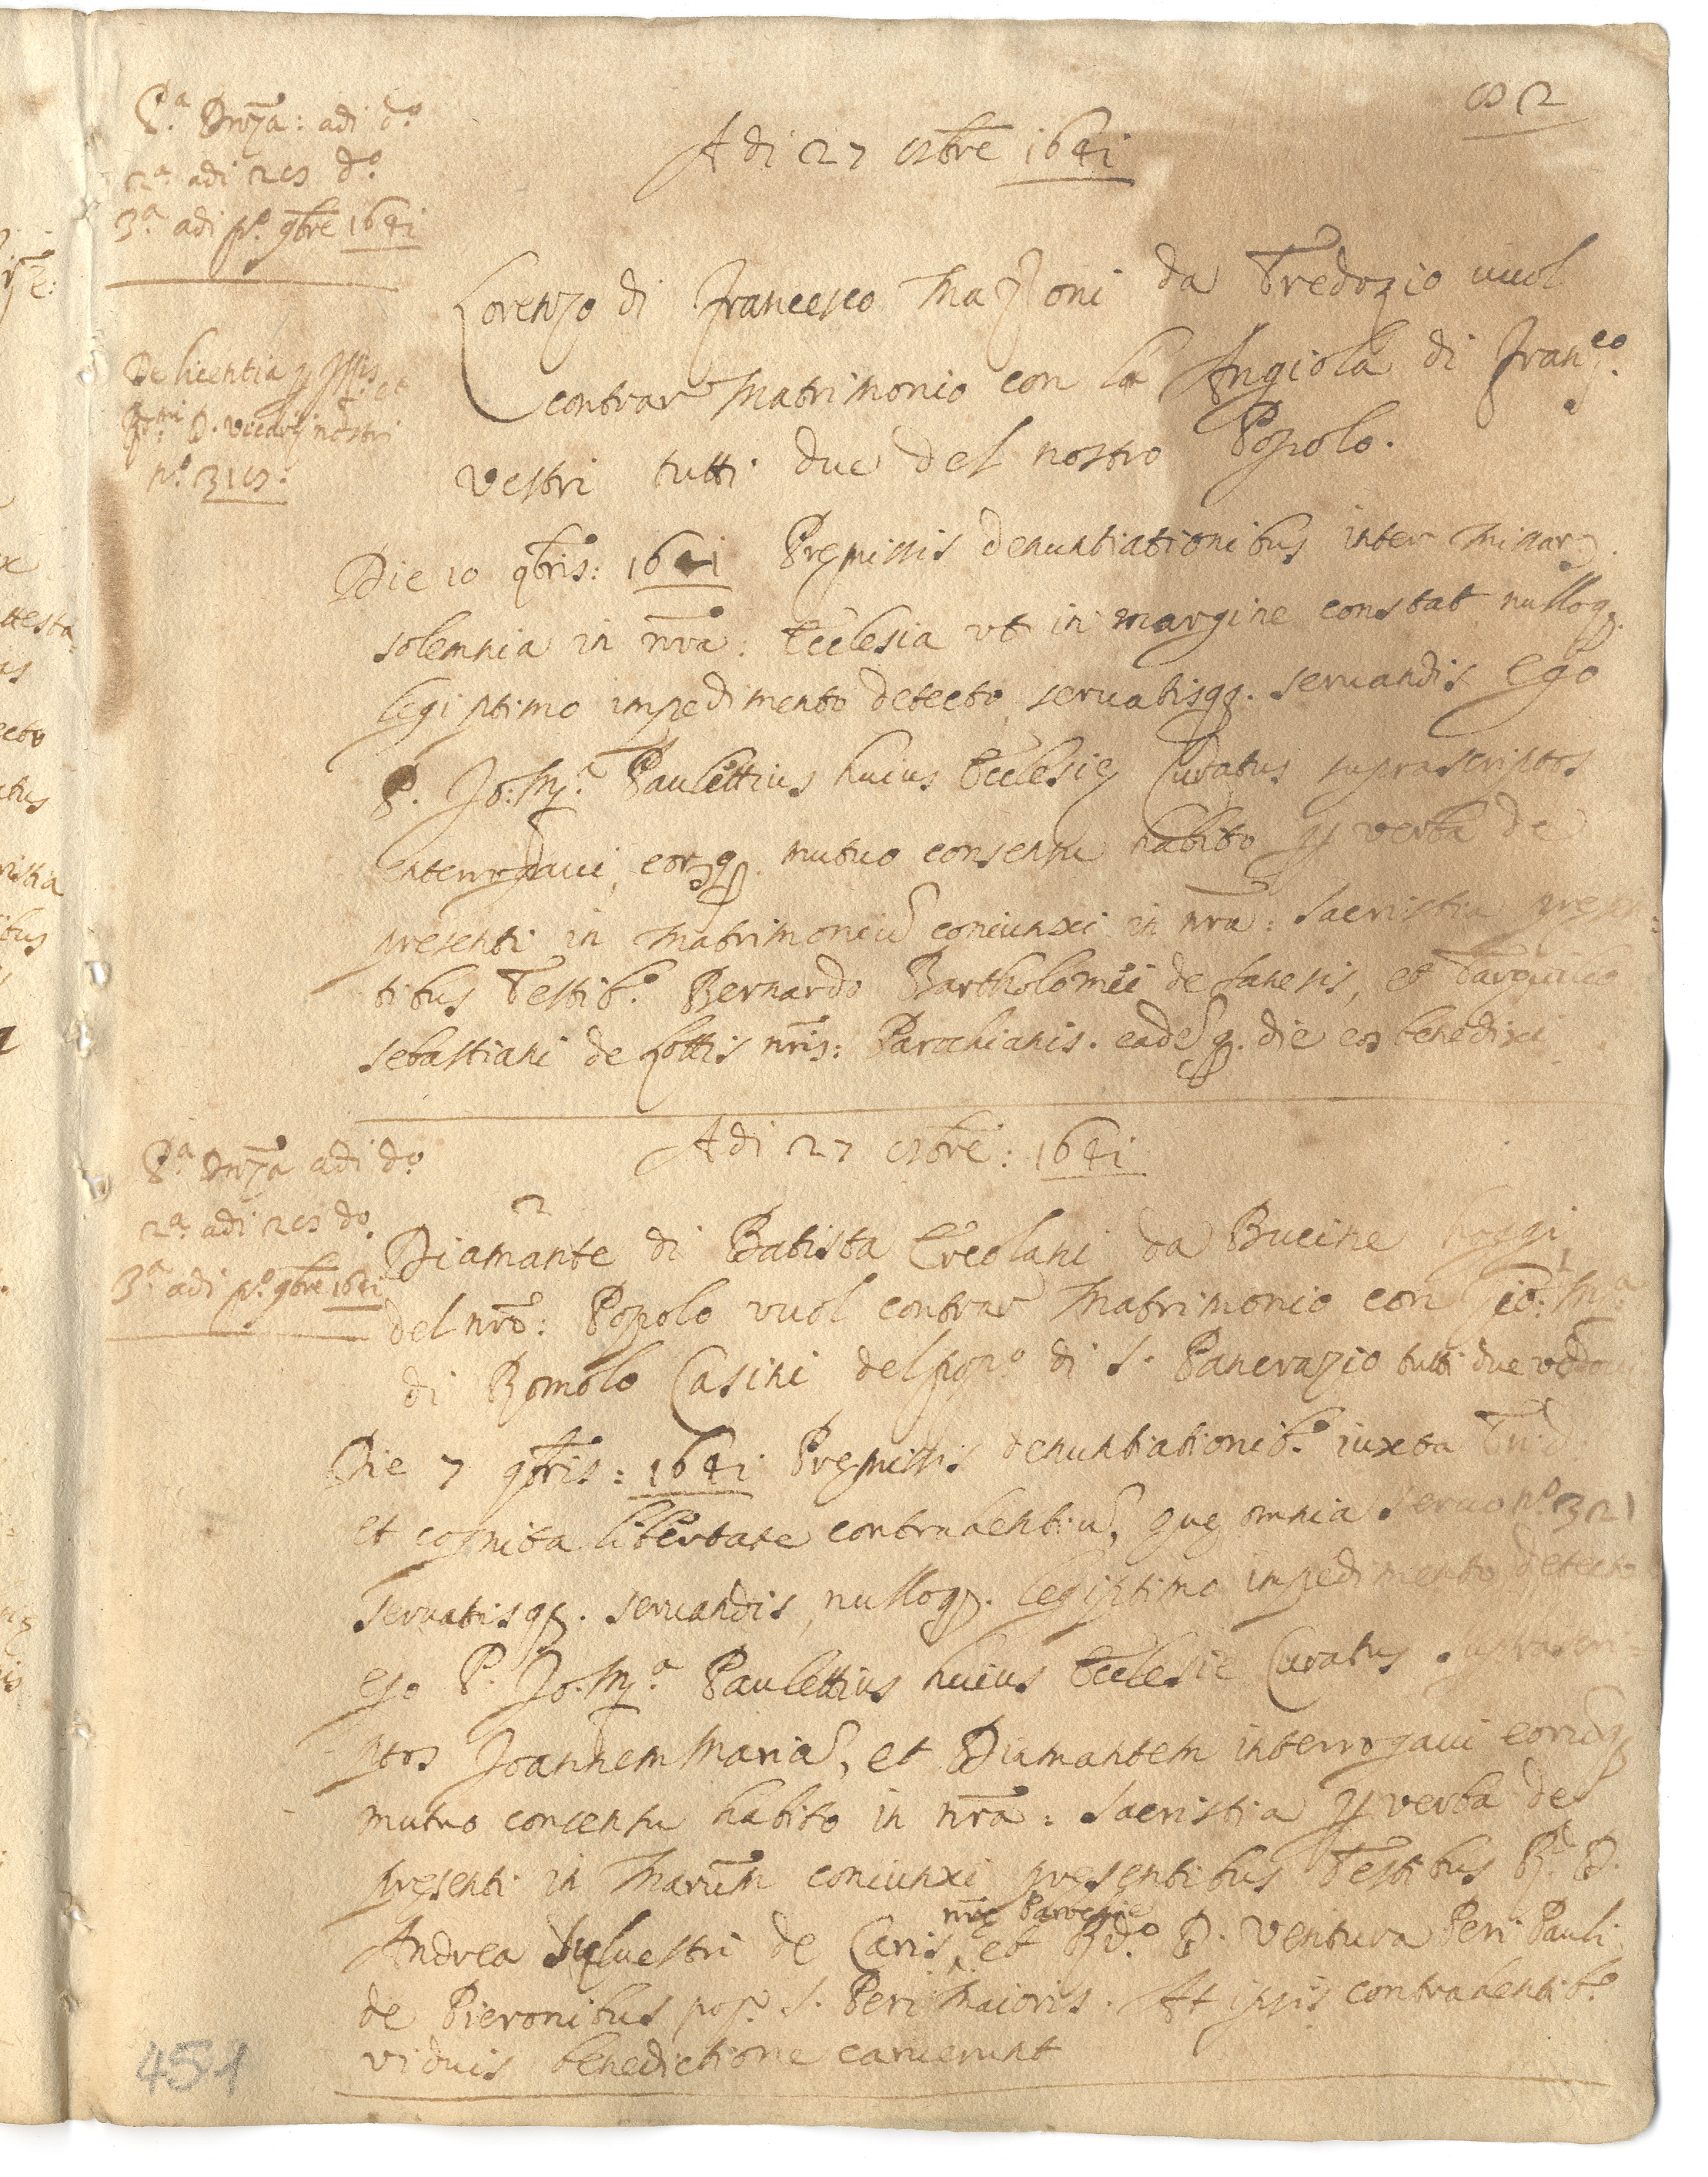 82
Adi 27 8bre 1641
P.a Dn͂za: adi do
2a adi 28 do
3.a adi po. 9bre 1641
Lorenzo di Francesco Mazzoni da Tredozio vuol
contrar Matrimonio con la Angiola di Franco.
vestri tutti due del nostro Popolo.
De licentia
Rmi D. Vicarij nostri
no 318.
Die 10 9bris: 1641 Premissis denuntiationibus inter missar.
solemnia in nra: Ecclesia vt in margine constat nulloq.
legiptimo impedimento detecto, servatisqz. servandis Ego
P. Jo: Ma. Paulettius huius Ecclesie Curatus suprascriptos
interrogaui, eorq. mutuo consensu habito p verba de
presenti in Matrimoniu coniunxi in nra: Sacristia presen:
tibus Testibo. Bernardo Bartholomei de Fanesis, et Tarquinio
sebastiani de Lottis nris: Parochianis. eadeq. die eos benedixi
Adi 27 8bre: 1641
Pa. Dnza adi do
2a. adi 28 do.
3.a adi po. 9bre 1641
2
Diamante di Batista Ercolani da Bucine hoggi
del nro: Popolo vuol contrar Matrimonio con Gio: Ma
di Romolo Casini del popo. di S. Pancrazio tutti due vedovi
Die 7 9bris: 1641 Premissis denuntiationibo. iuxta Trid.
et cognita libertate contrahentiu, que omnia servo no. 321
servatisqz. servandis, nulloq. legiptimo impedimento detecto
ego P. Jo. Ma. Paulettius huius Ecclesie Curatus suprascri=
ptos Joannem Maria, et Diamantem interrogaui eoruq
mutuo concensu habito in nra: Sacristia p verba de
presenti in Matrum coniunxi presentibus Testibus R.d D.
nre Parochie
Andrea Syluestri de Caris, et Rdo. D. Ventura Peri Pauli
de Pieronibus pop. S. Peri Maioris. At ipsis contrahentibo.
viduis benedictione caruerunt
451